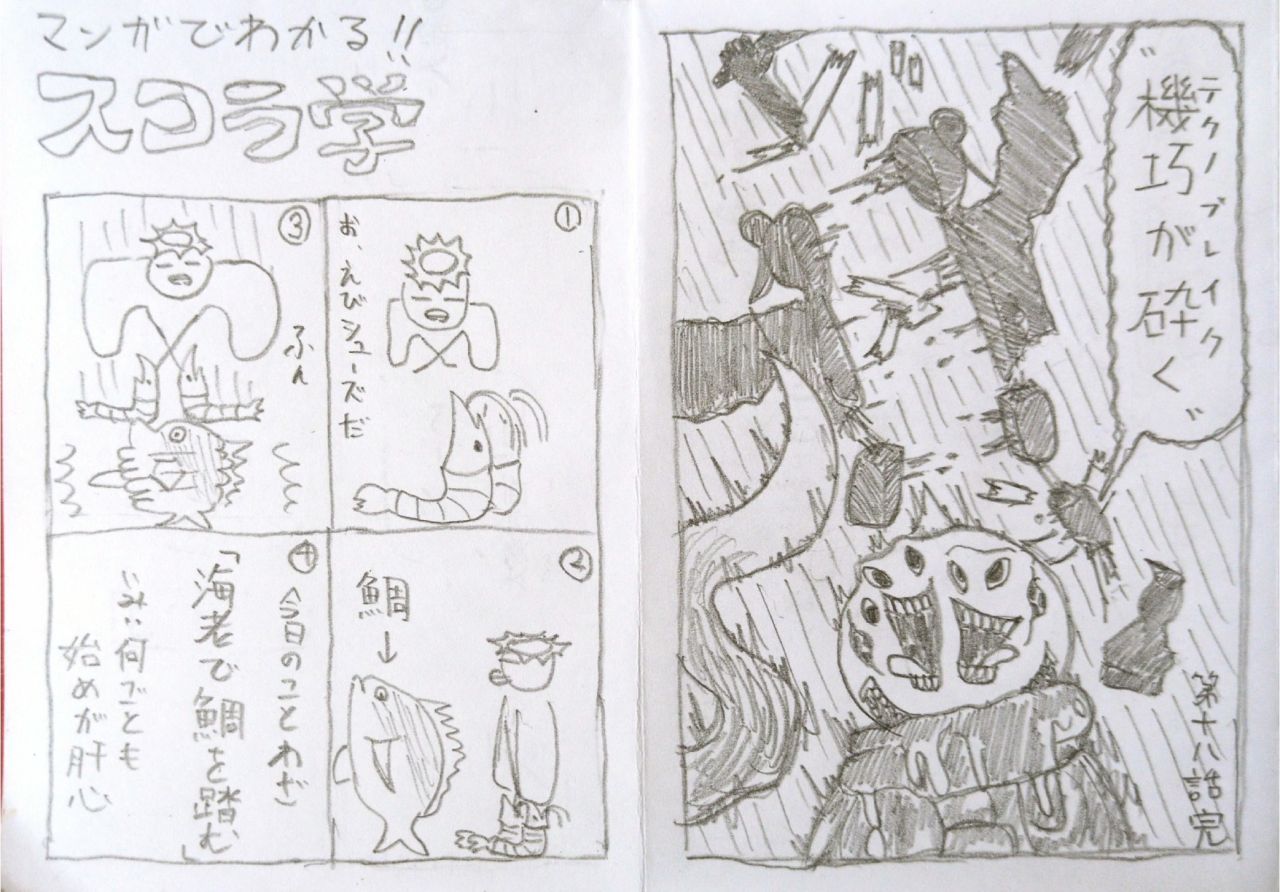 〝機巧が砕く〟
テクノブレイク
第十八話完
マンガでわかる!!
スコラ学
①
お、えびシューズだ
②
鯛
↓
③
ふん
④
〈今日のことわざ〉
「海老で鯛を踏む」
いみ:何ごとも
始めが肝心